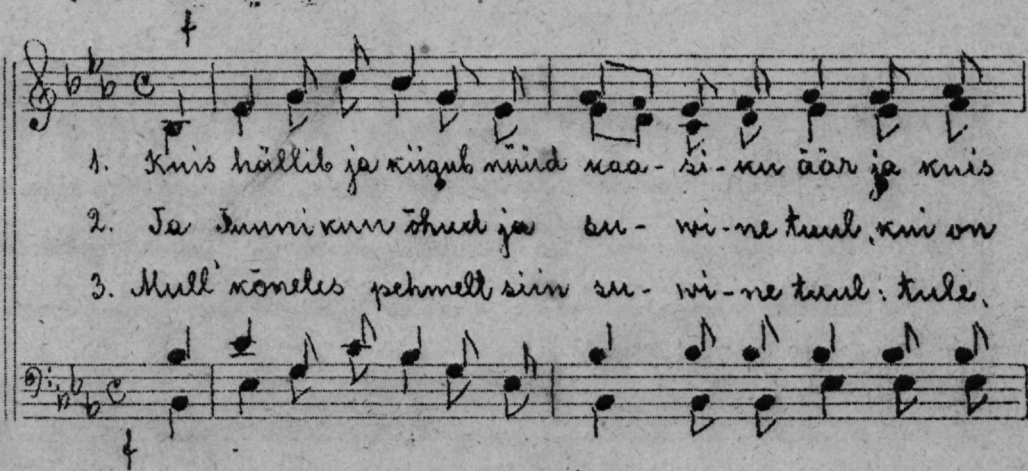 f
1. Kuis hällib ja kiigub nüüd kaa-si-ku äär ja kuis
2. Ta Juuni kuu õhud ja su-wi-ne tuul, kui on
3. Mull' kõneles pehmelt siin su-wi-ne tuul: tule,
f